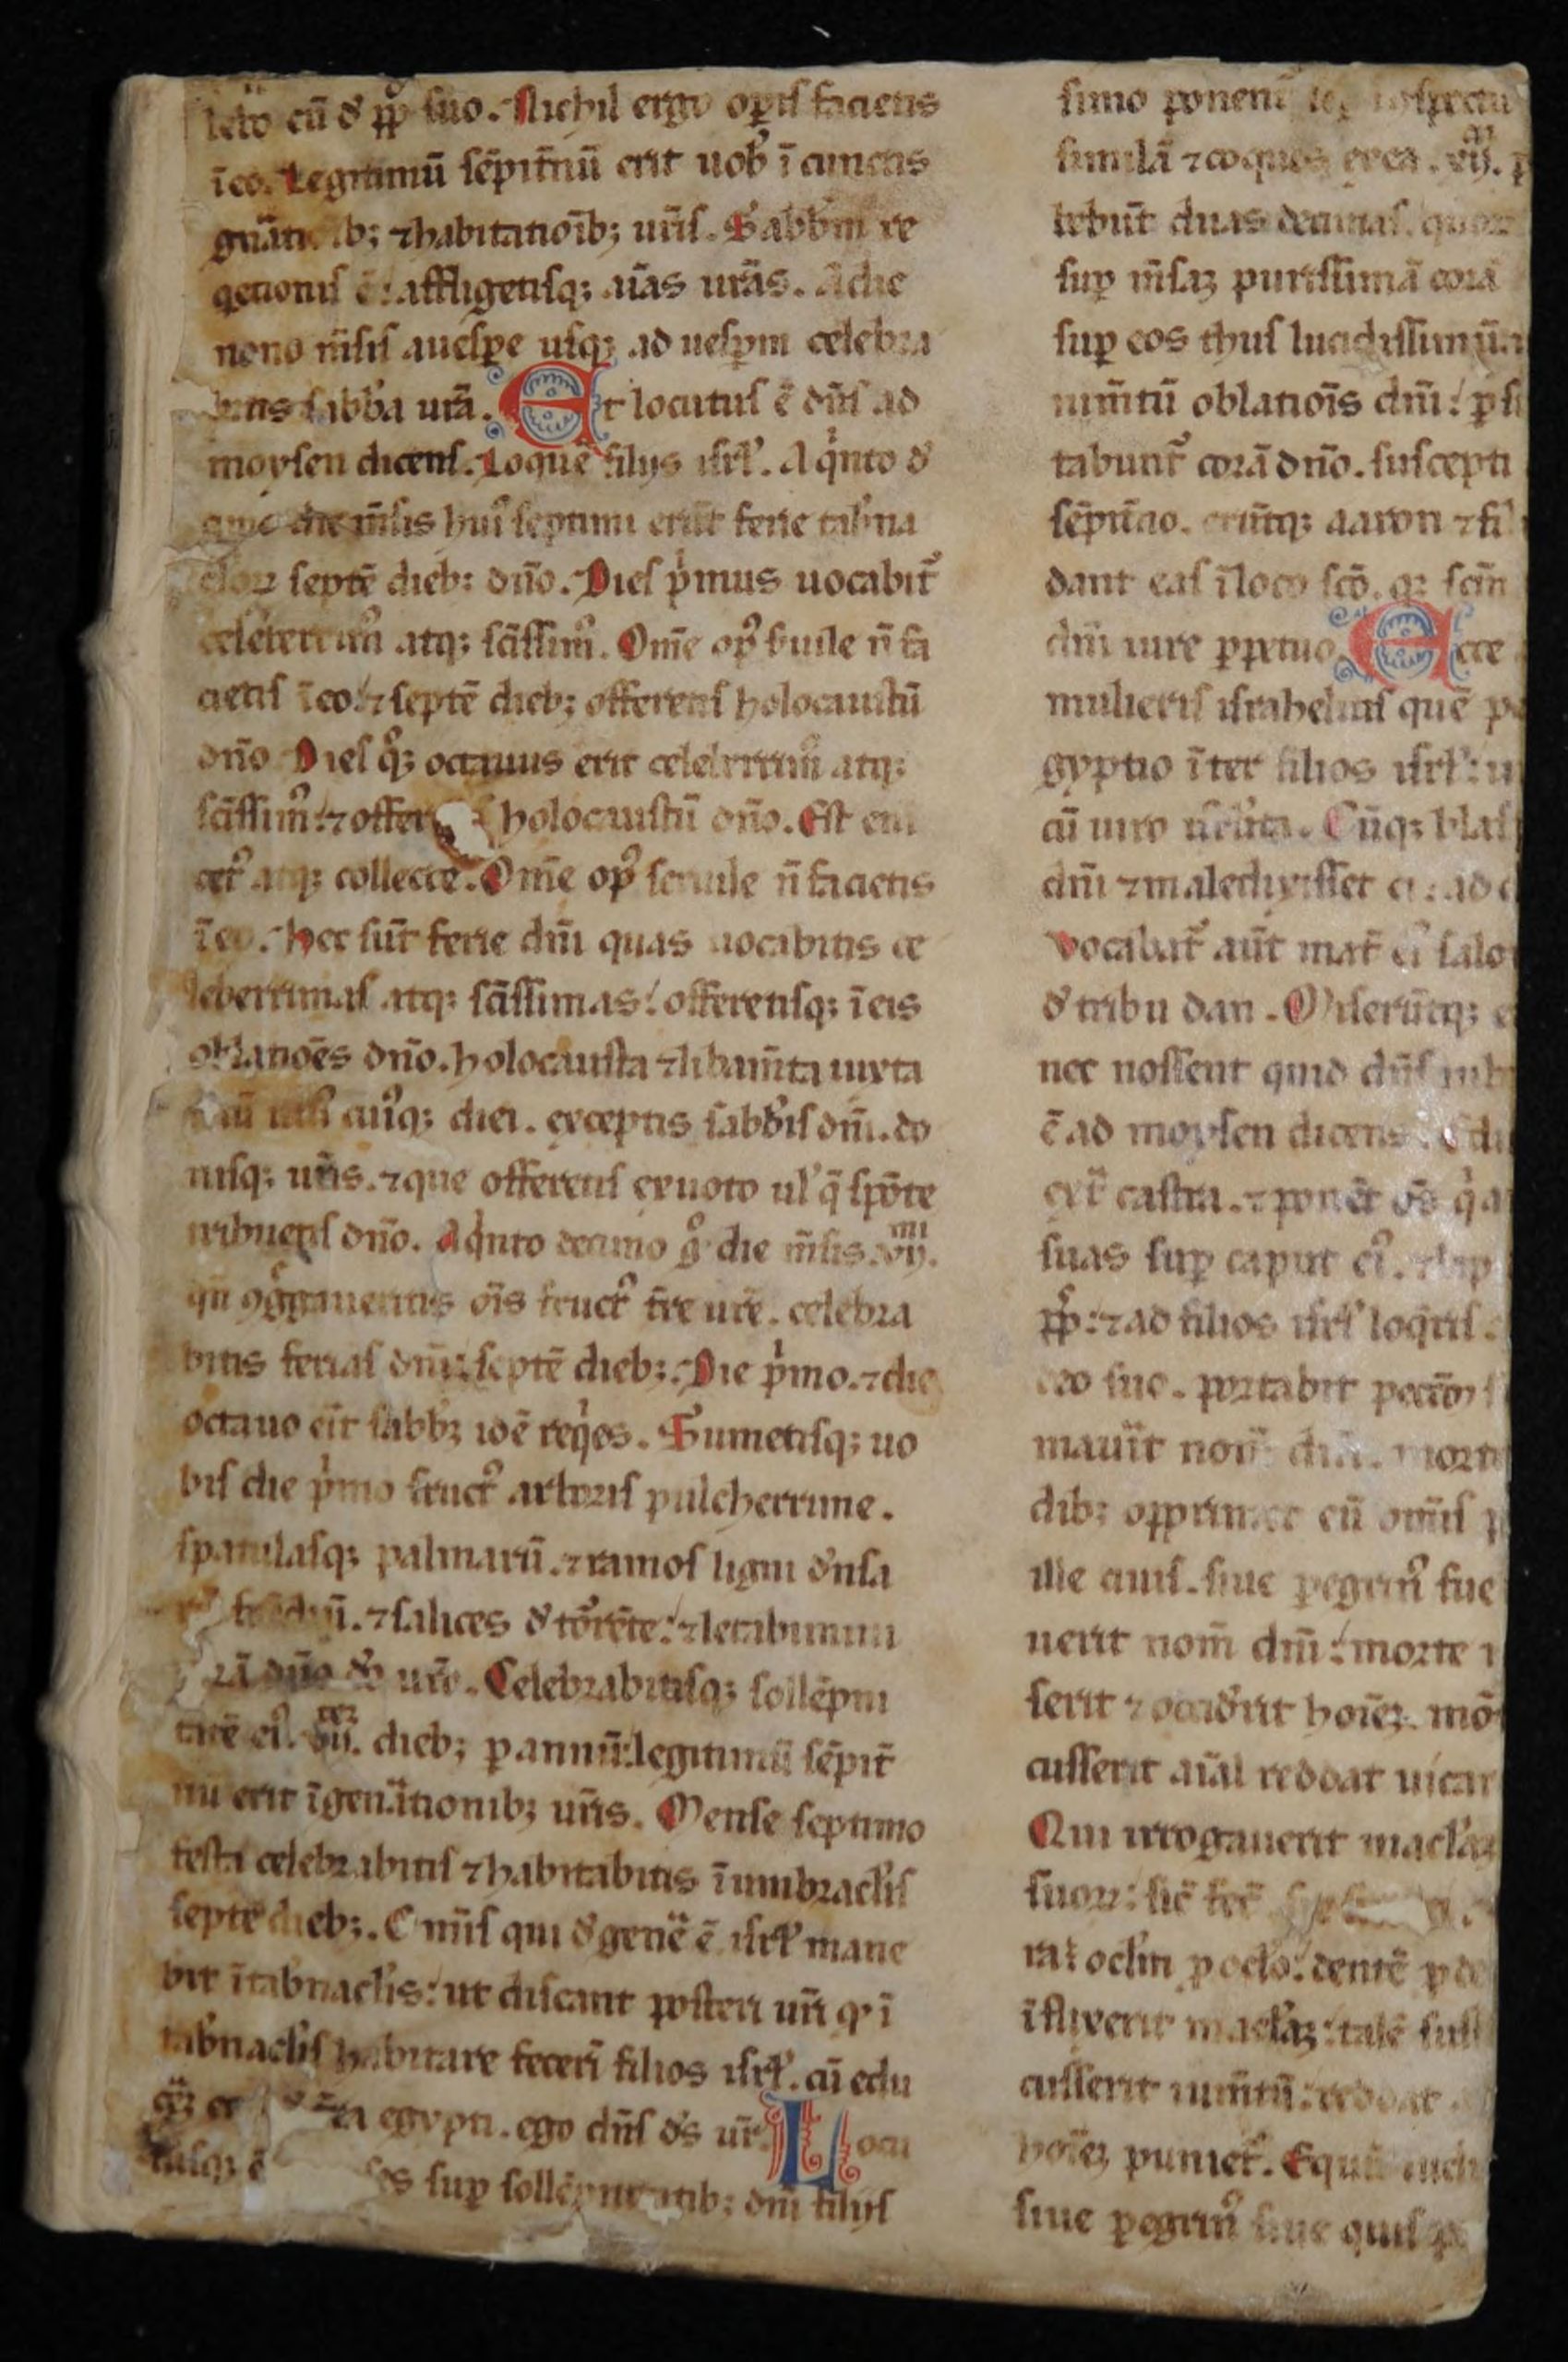 lebo eū đ pp̄ło suo. Nichil ergo oꝑis facietis
ī eo. Legitimū sēpit̄nū erit uob̄ ī cunctis
b; ⁊ habitatiōib; ur̄is. Sabb̄m re
q̄etionis ē: affligetisq; aīas urās. A die
nono m̄sis auesꝑe usq; ad uesꝑm celebra
bitis sabb̄a urā. Et locutus ē dn̄s ad
moysen dicens. Loquē filijs isrł. A qͥnto đ
cimo die m̄sis huiꝰ septimi erūt ferie tab̄na
clorꝝ septē dieb; dn̄o. Dies pͥmus uocabit᷑
celeberrimꝰ atq; sc̄issimꝰ. Om̄e opꝰ seruile n̄ fa
cietis ī eo: ⁊ septē dieb; offeretis holocaustū
dn̄o Dies q̊; octauus erit celeberrimꝰ atq;
sc̄issimꝰ: ⁊ offer holocaustū dn̄o. Est eni
cetꝰ atq; collecte. Om̄e opꝰ seruile n̄ facietis
ī eo. hec sūt ferie dn̄i quas uocabitis ce
leberrimas atq; sc̄issimas: offeretisq; ī eis
oblatiōes dn̄o. holocausta ⁊ libam̄ta iuxta
cuiꝰq; diei. exceptis sabb̄is dn̄i. do
nisq; ur̄is. ⁊ que offeretis ex uoto ul̓ q̄ spōte
tribuetis dn̄o. A qͥnto decimo g̊ die m̄sis .vijͫͥ.
qn̄ ꝯg̊gaueritis oīs fructꝰ t̄re ur̄e. celebra
bitis ferias dn̄i: septē dieb;. Die pͥmo. ⁊ die
octauo eīt sabbꝫ idē reqͥes. Sumetisq; uo
bis die pͥmo fructꝰ arboris pulcherrime.
spatulasq; palmarū. ⁊ ramos ligni đnsa
rꝰ frōdiū. ⁊ salices đ torrēte: ⁊ letabimini
rā dn̄o do ur̄o. Celebrabitisq; sollēpni
tatē eiꝰ. vij. dieb; ꝑ annū: legitimū sēpit̄
nū erit ī genātionib; ur̄is. Mense septimo
festa celebrabitis ⁊ habitabitis ī umbraclis
septē dieb;. Omīs qui đ genē ē isrł mane
bit ī tab̄naclis: ut discant posteri ur̄i qꝰ ī
tab̄naclis habitare fecerī filios isrł. cū edu
t̄ra egypti. ego dn̄s đs ur̄. Locu
tusq; ē ses suꝑ sollēpnitatib; dn̄i filijs
simo ponent᷑
similā ⁊ coques ex ea. xij. p
bebūt duas decimas. quoꝝ
suꝑ m̄saꝫ purissimā corā
suꝑ eos thus lucidissimū
nim̄tū oblatiōis dn̄i: ꝑ si
tabunt᷑ corā dn̄o. suscepti
sēpit̄no. erūtq; aaron ⁊ fil
dant eas ī loco sc̄o. q; scm̄
dn̄i iure ꝑpetuo. Ecce
mulieris israhelitis quē p
gyptio īter filios isrł: iu
cū uiro israelita. Cūq; blas
dn̄i ⁊ maledixisset ei: ad
Vocabat᷑ aūt mat̄ eiꝰ salo
đ tribu dan. Miserūtq; e
nec nossent quid dn̄s iub
ē ad moysen dicens. Edu
ext̄ castra. ⁊ ponēt oēs qͥ a
suas suꝑ caput eiꝰ. ⁊ lap
pp̄łs: ⁊ ad filios isrł loq̄ris.
deo suo. portabit pecc̄m
mauīt nom̄ dn̄i. morte
dib; opprimet eū omīs p
ille ciuis. siue peregrinꝰ fue
uerit nom̄ dn̄i: morte
serit ⁊ occiđrit hoīeꝫ. mō
cusserit aīal reddat uicar
Qui irrogauerit maclaꝫ
suoꝝ: sic̄ fec̄
rā: oclm̄ ꝑ oclo: dentē ꝑ de
īflixerit maclaꝫ: talē sust
cusserit ium̄tū: reddat.
hoīeꝫ puniet᷑. Equū iudi
siue ꝑegrinꝰ siue quis pe